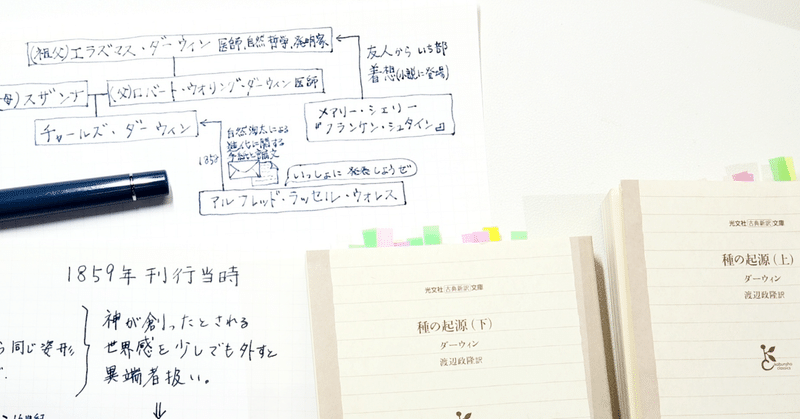 (祖父)エラズマス・ダーウィン 医師,自然哲学,発明家
友人から いち部
着想(小説に登場)
母)スザンナ
(父)ロバート・ウォリング・ダーウィン 医師
メアリー・シェリー
『フランケン・シュタイン』
チャールズ・ダーウィン
自然淘汰による
進化に関する
手紙と論文
1858
いっしょに 発表しようぜ
アルフレッド・ラッセル・ウォレス
1859年 刊行当時
神が創ったとされる
世界感を少しでも外すと
異端者扱い。
ら同じ姿形
光文社古典新訳文庫
種の起源(下)
ダーウィン
渡辺政隆訳
光文社古典新訳文庫
種の起源(上)
ダーウィン
渡辺政隆訳